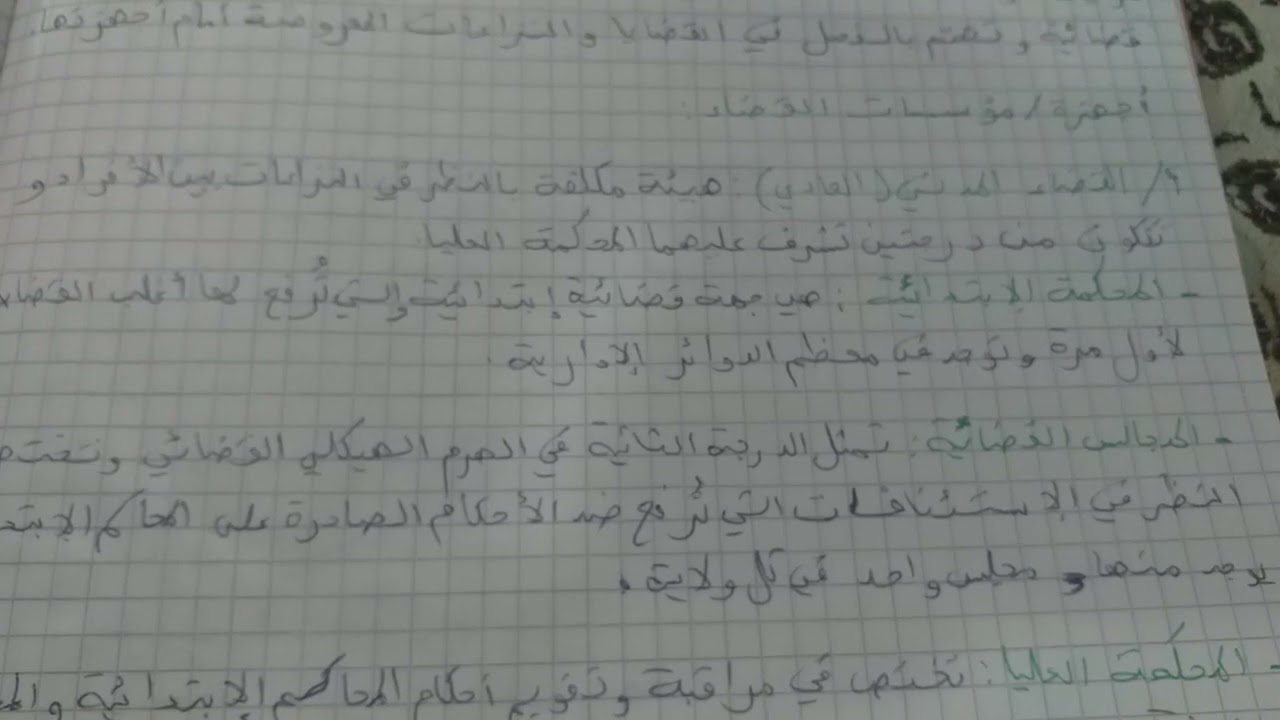 قضائية و تهتم بالفصل في القضايا و النزاعات المعروضة أمام أجهزتها.
أجهزة / مؤسسات القضاء:
1/ القضاء المدني (العادي): هيئة مكلفة بالنظر في النزاعات بين الأفراد و
تتكون من درجتين تشرف عليهما المحكمة العليا.
- المحكمة الابتدائية: هي جهة قضائية إبتدائية والتي تُرفع لها أغلب القضايا
لأول مرة و توجد في معظم الدوائر الإدارية.
- المجالس القضائية: تمثل الدرجة الثانية في الهرم الهيكلي القضائي و تختص
النظر في الاستئنافات التي تُرفع ضد الأحكام الصادرة على المحاكم
يوجد منها و مجلس واحد في كل ولاية.
- المحكمة العليا: تختص في مراقبة و تقويم أحكام المحاكم الابتدائية